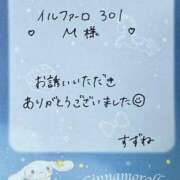 イルファーロ 301
♡ M 様 ♡
お誘いいただき
ありがとうございました☺
すずね
cinnamoroll